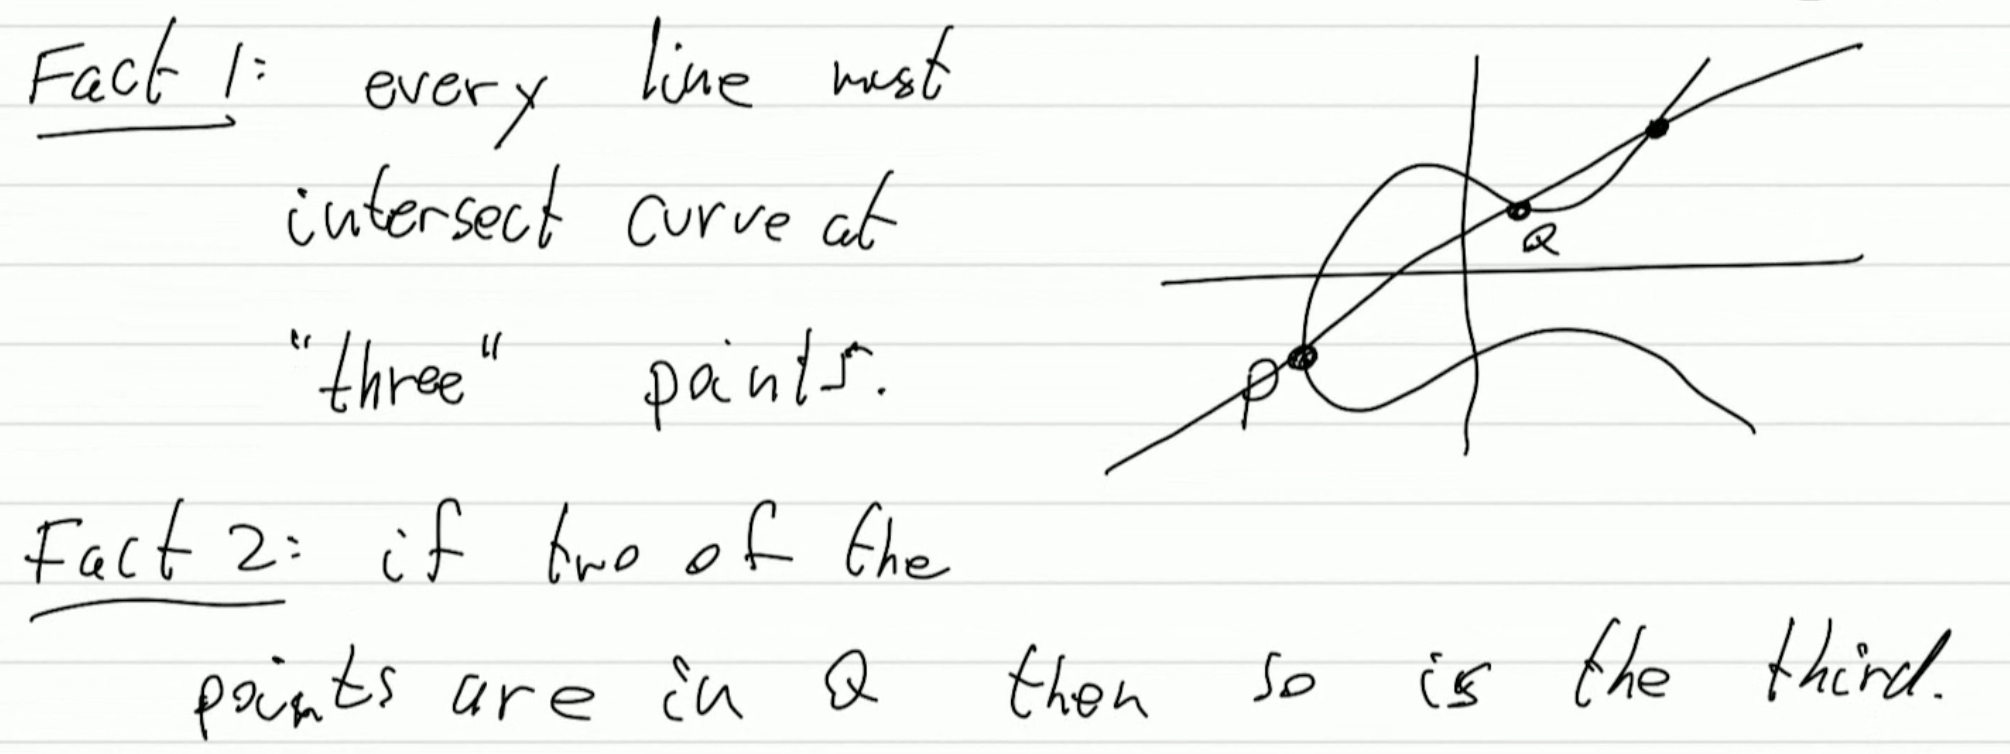 Fact 1: every line must
intersect curve at
"three" points.
P
Q
Fact 2: if two of the
points are in Q then so is the third.